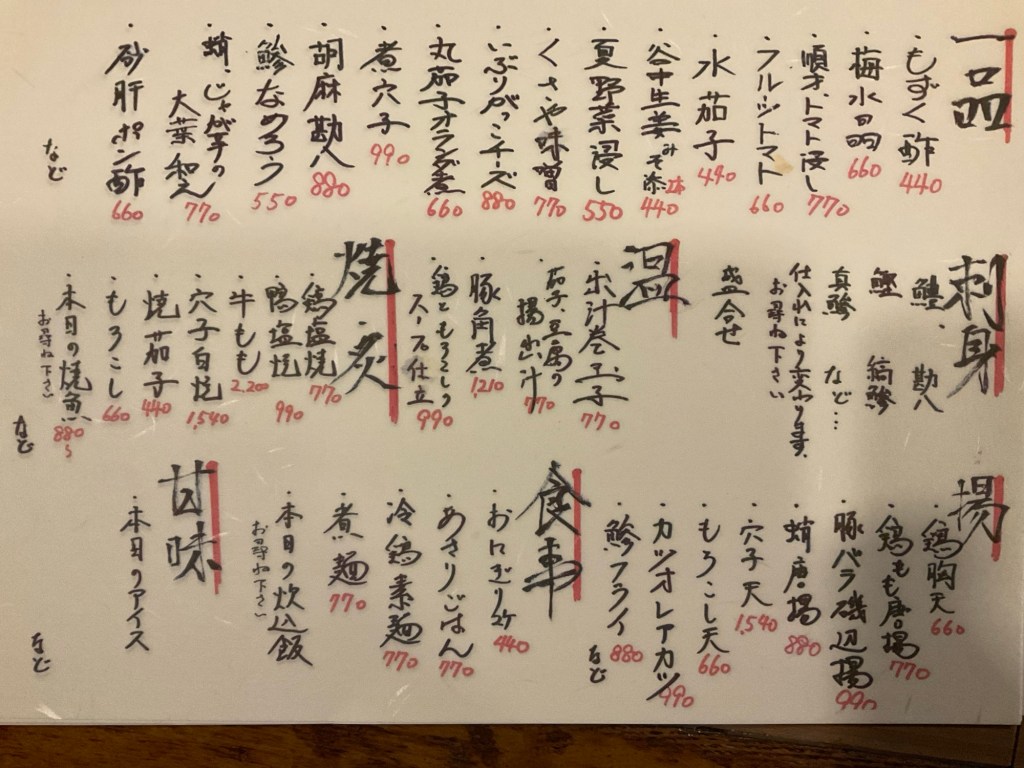 一品
・もずく酢 440
・梅水晶 660
・順才、トマト浸し 770
・フルーツトマト 660
・水茄子 490
・谷中生姜みそ添 2本 440
・夏野菜浸し 550
・くさや味噌 770
・いぶりがっこチーズ 880
・丸茄子オランダ煮 660
・煮穴子 990
・胡麻勘八 880
・鯵なめろう 550
・蛸、じゃが芋の
大葉和え 770
・砂肝ポン酢 660
など
刺身
鱧・勘八
鰹 縞鯵
真鯵 など…
仕入れにより変わります、
お尋ね下さい
盛合せ
温
・出汁巻玉子 770
・茄子、豆腐の
揚出汁 770
・豚角煮 1,210
・鶏ともろこしの
スープ仕立 990
焼・炙
・鶏塩焼 770
・鴨塩焼 990
・牛もも 2,200
・穴子白焼 1,540
・焼茄子 440
・もろこし 660
・本日の焼魚 880〜
お尋ね下さい
など
揚
・鶏胸天 660
・鶏もも唐揚 770
・豚バラ磯辺揚 990
・蛸唐揚 880
・穴子天 1,540
・もろこし天 660
・カツオレアカツ 990
・鯵フライ 880
など
食事
・おにぎり 2ケ 440
・あさりごはん 770
・冷鶏素麺 770
・煮麺 770
・本日の炊込飯
お尋ね下さい
甘味
・本日のアイス
など